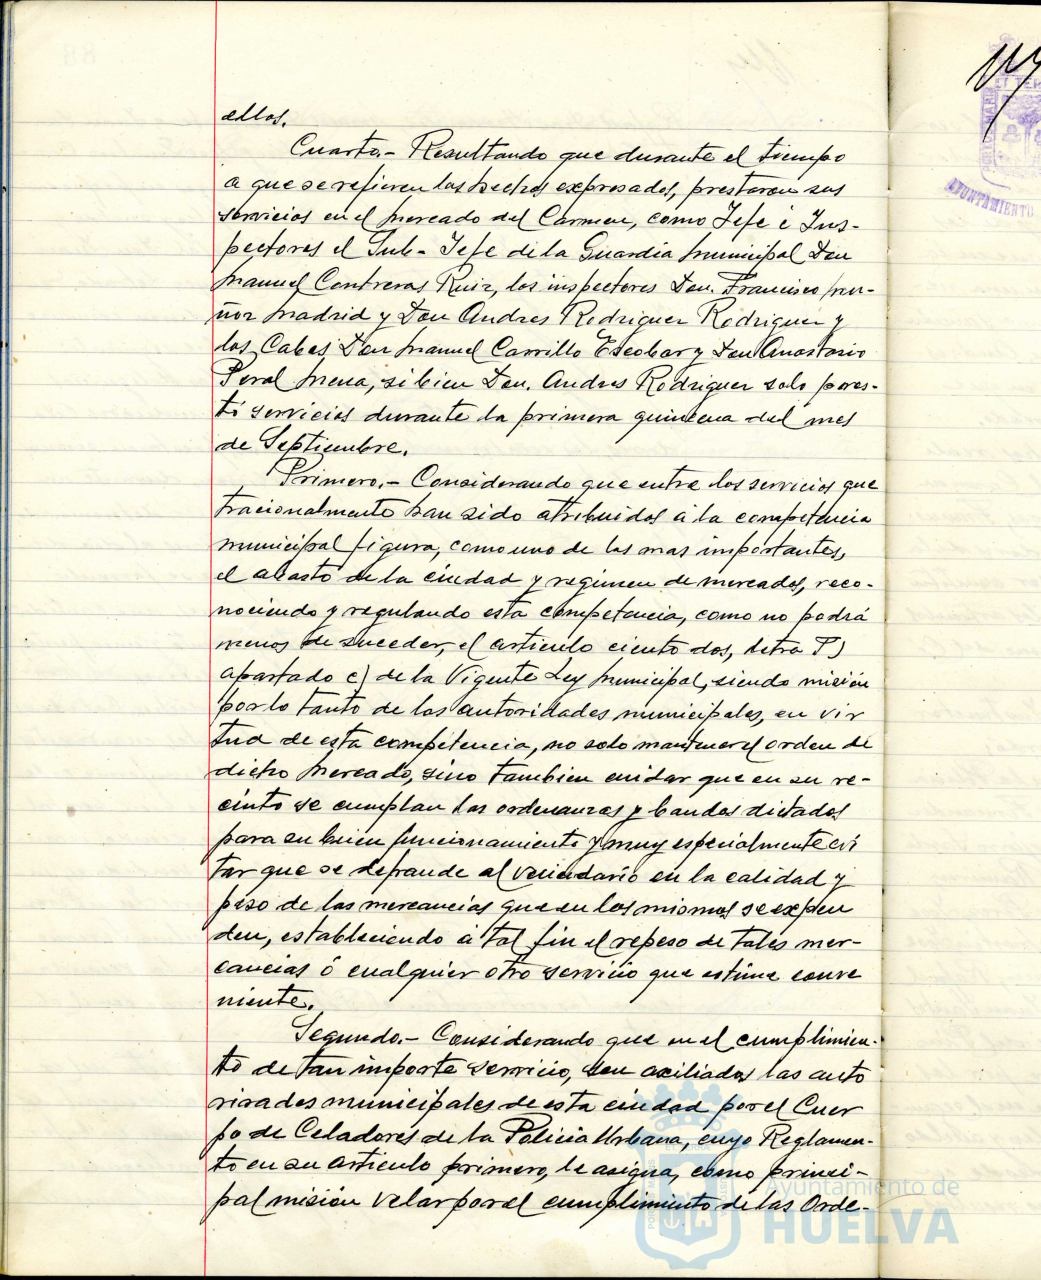 ellos.
Cuarto.- Resultando que durante el tiempo
a que se refieren los hechos expresados, prestaron sus
servicios en el mercado del Carmen, como Jefe é Ins-
pectores el Sub-Jefe de la Guardia Municipal Don
Manuel Contreras Ruiz, los inspectores Don. Francisco Mu-
ñoz Madrid y Don Andres Rodriguez Rodriguez y
los Cabos Don Manuel Carrillo Escobar y Don Anastasio
Peral Mena, si bien Don. Andres Rodriguez solo pres-
tó servicios durante la primera quincena del mes
de Septiembre.
Primero.- Considerando que entre los servicios que
tracionalmente han sido atribuidos á la competencia
municipal figura, como uno de los mas importantes,
el abasto de la ciudad y regimen de mercados, reco-
nociendo y regulando esta competencia, como no podrá
menos de suceder, el articulo ciento dos, letra P)
apartado c) de la Vigente Ley Municipal, siendo misión
por lo tanto de las autoridades municipales, en vir
tud de esta competencia, no solo mantener el orden de
dicho Mercado, sino tambien cuidar que en su re-
cinto se cumplan las ordenanzas y bandos dictados
para su buen funcionamiento y muy especialmente evi
tar que se defraude al vecindario en la calidad y
peso de las mercancias que en los mismos se expen
den, estableciendo á tal fin el repeso de tales mer-
cancias ó cualquier otro servicio que estime conve
niente.
Segundo.- Considerando que en el cumplimien-
to de tan importe servicio, son auxiliados las auto
rizades municipales de esta ciudad por el Cuer
po de Celadores de la Policia Urbana, cuyo Reglamen-
to en su articulo primero, le asigna, como princi-
pal misión velar por el cumplimiento de las Orde-
AYUNTAMIENTO
Ayuntamiento de
HUELVA